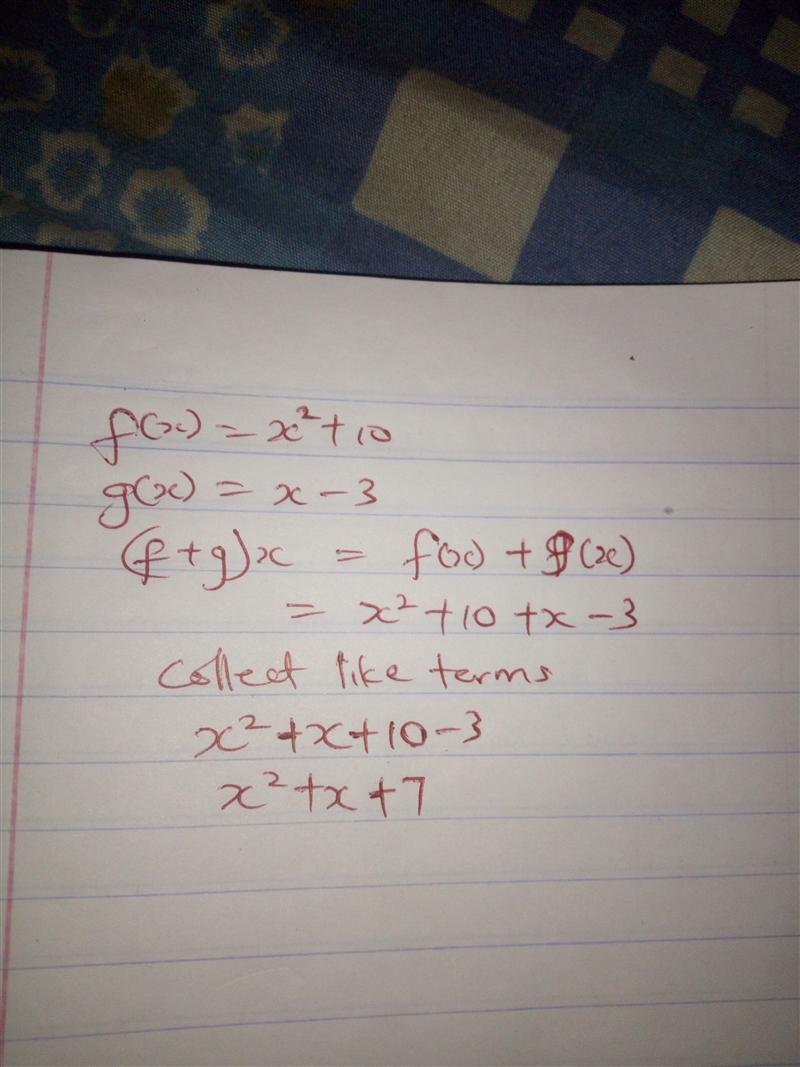 f(x) = x² + 10
g(x) = x - 3
(f + g)x = f(x) + g(x)
= x² + 10 + x - 3
Collect like terms
x² + x + 10 - 3
x² + x + 7